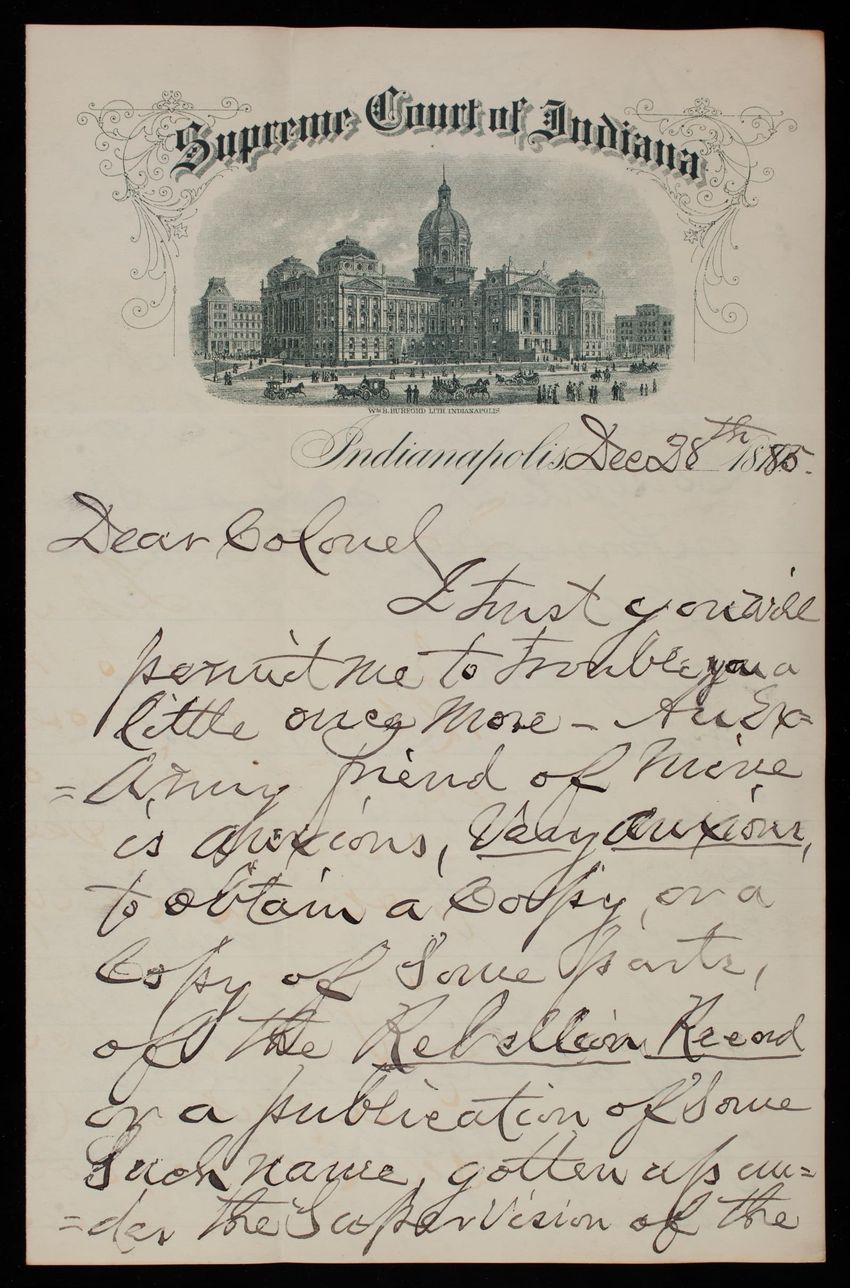 Supreme Court of Indiana
WM B. BURFORD LITH. INDIANAPOLIS.
Indianapolis, Dec 28th 1885.
Dear Colonel
I trust you will
permit me to trouble you a
little once more – An Ex=
=Army friend of mine
is anxious, Very anxious,
to obtain a Copy, or a
Copy of Some parts,
of the Rebellion Record
or a publication of Some
Such name, gotten up un=
=der the Supervision of the